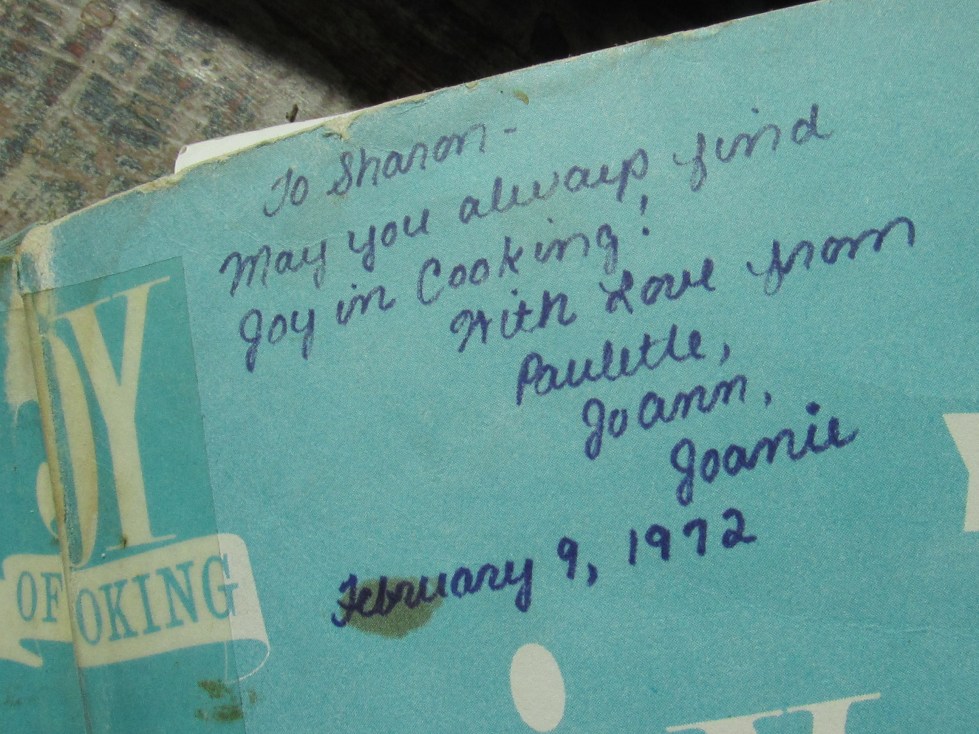 To Sharon-
May you always find
Joy in Cooking!
With Love from
Paulette,
JoAnn,
Joanie
February 9, 1972
OY
OF OKING